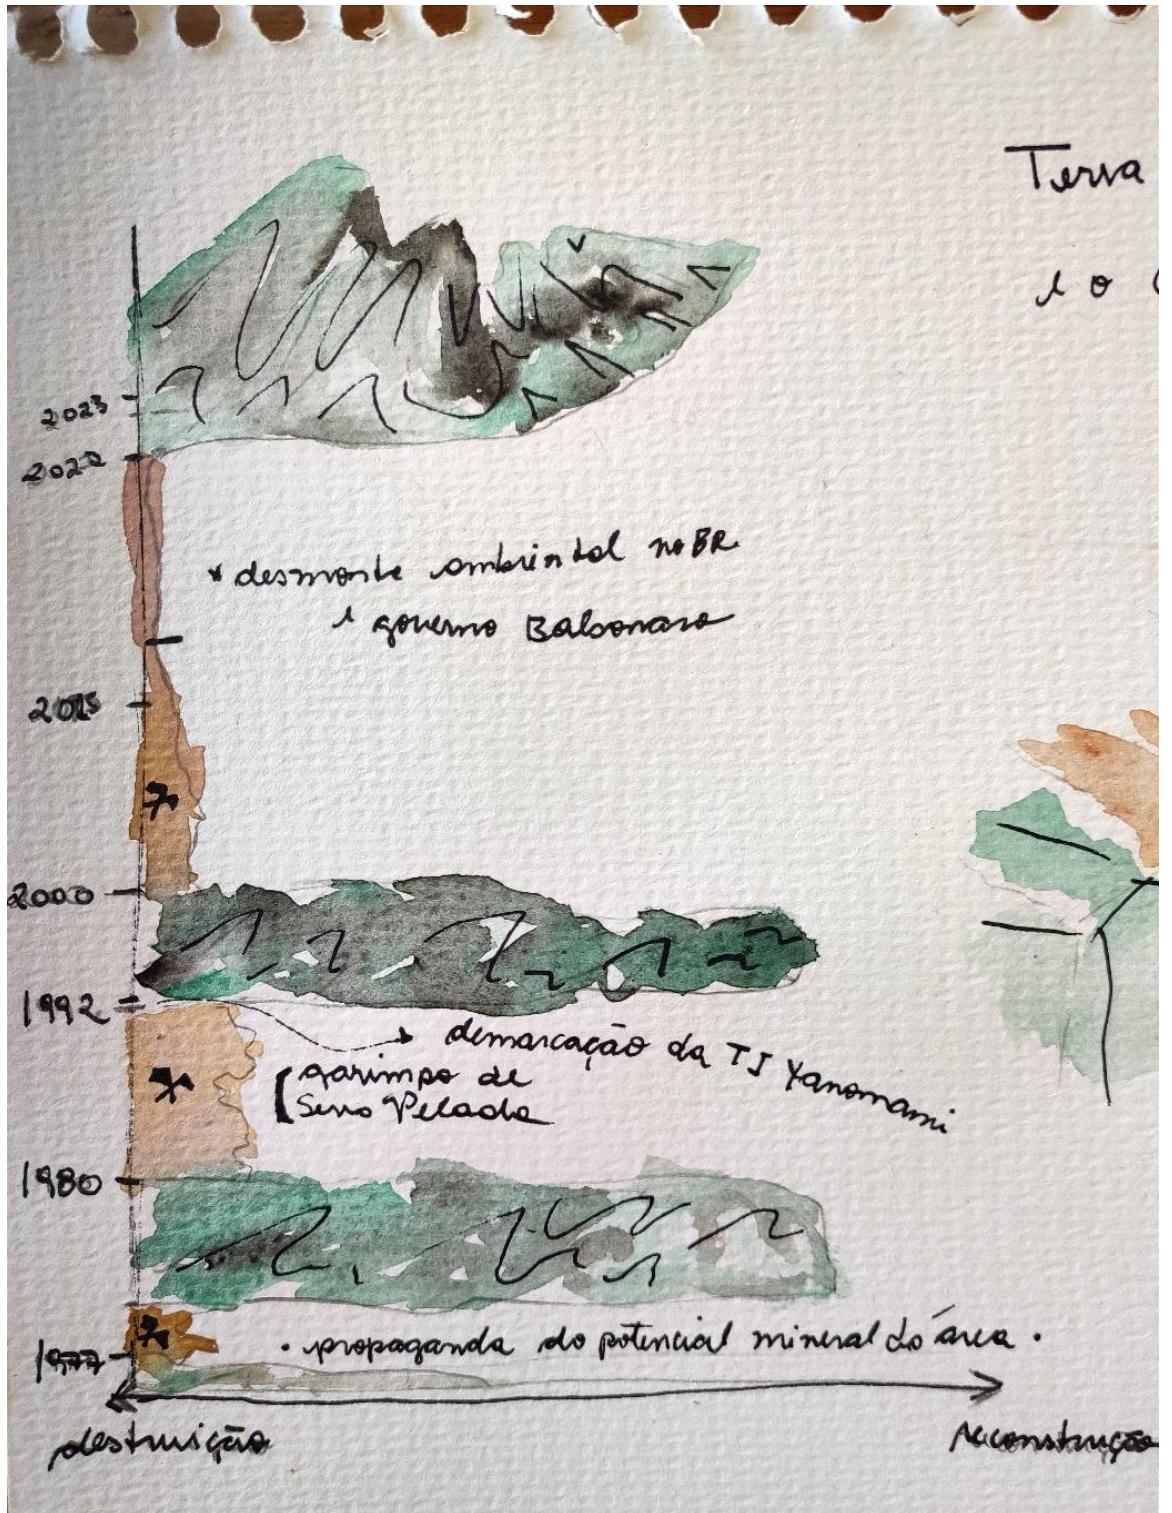 Terra
e o
2023
2022
* desmonte ambiental no BR
e governo Bolsonaro
2015
2000
1992
demarcação da TI Yanomami
garimpo de
Serra Pelada
1980
1977
• propaganda do potencial mineral da área •
destruição
reconstrução